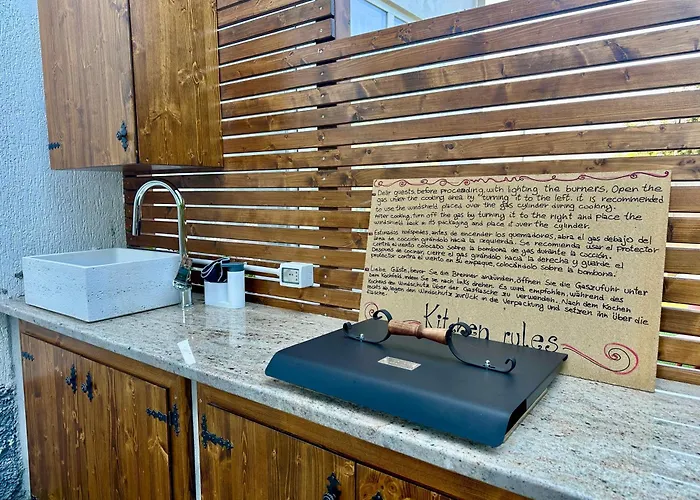 Dear guests, before proceeding with lighting the burners, Open the
gas under the cooking area by "turning" it to the left. It is recommended
to use the windshield placed over the gas cylinder during cooking.
After cooking, turn off the gas by turning it to the right and place the
windshield back in its packaging and place it over the cylinder.
Estimados huéspedes, antes de encender los quemadores, abra el gas debajo del
área de cocción girándolo hacia la izquierda. Se recomienda usar el protector
contra el viento colocado sobre la bombona de gas durante la cocción.
Después de cocinar, cierre el gas girándolo hacia la derecha y guarde el
protector contra el viento en su empaque, colocándolo sobre la bombona.
Liebe Gäste, bevor Sie die Brenner anzünden, öffnen Sie die Gaszufuhr unter
dem Kochfeld, indem Sie sie nach links drehen. Es wird empfohlen, während des
Kochens den Windschutz über der Gasflasche zu verwenden. Nach dem Kochen
legen den Windschutz zurück in die Verpackung und setzen ihn über die
Flasche.
Kitchen rules